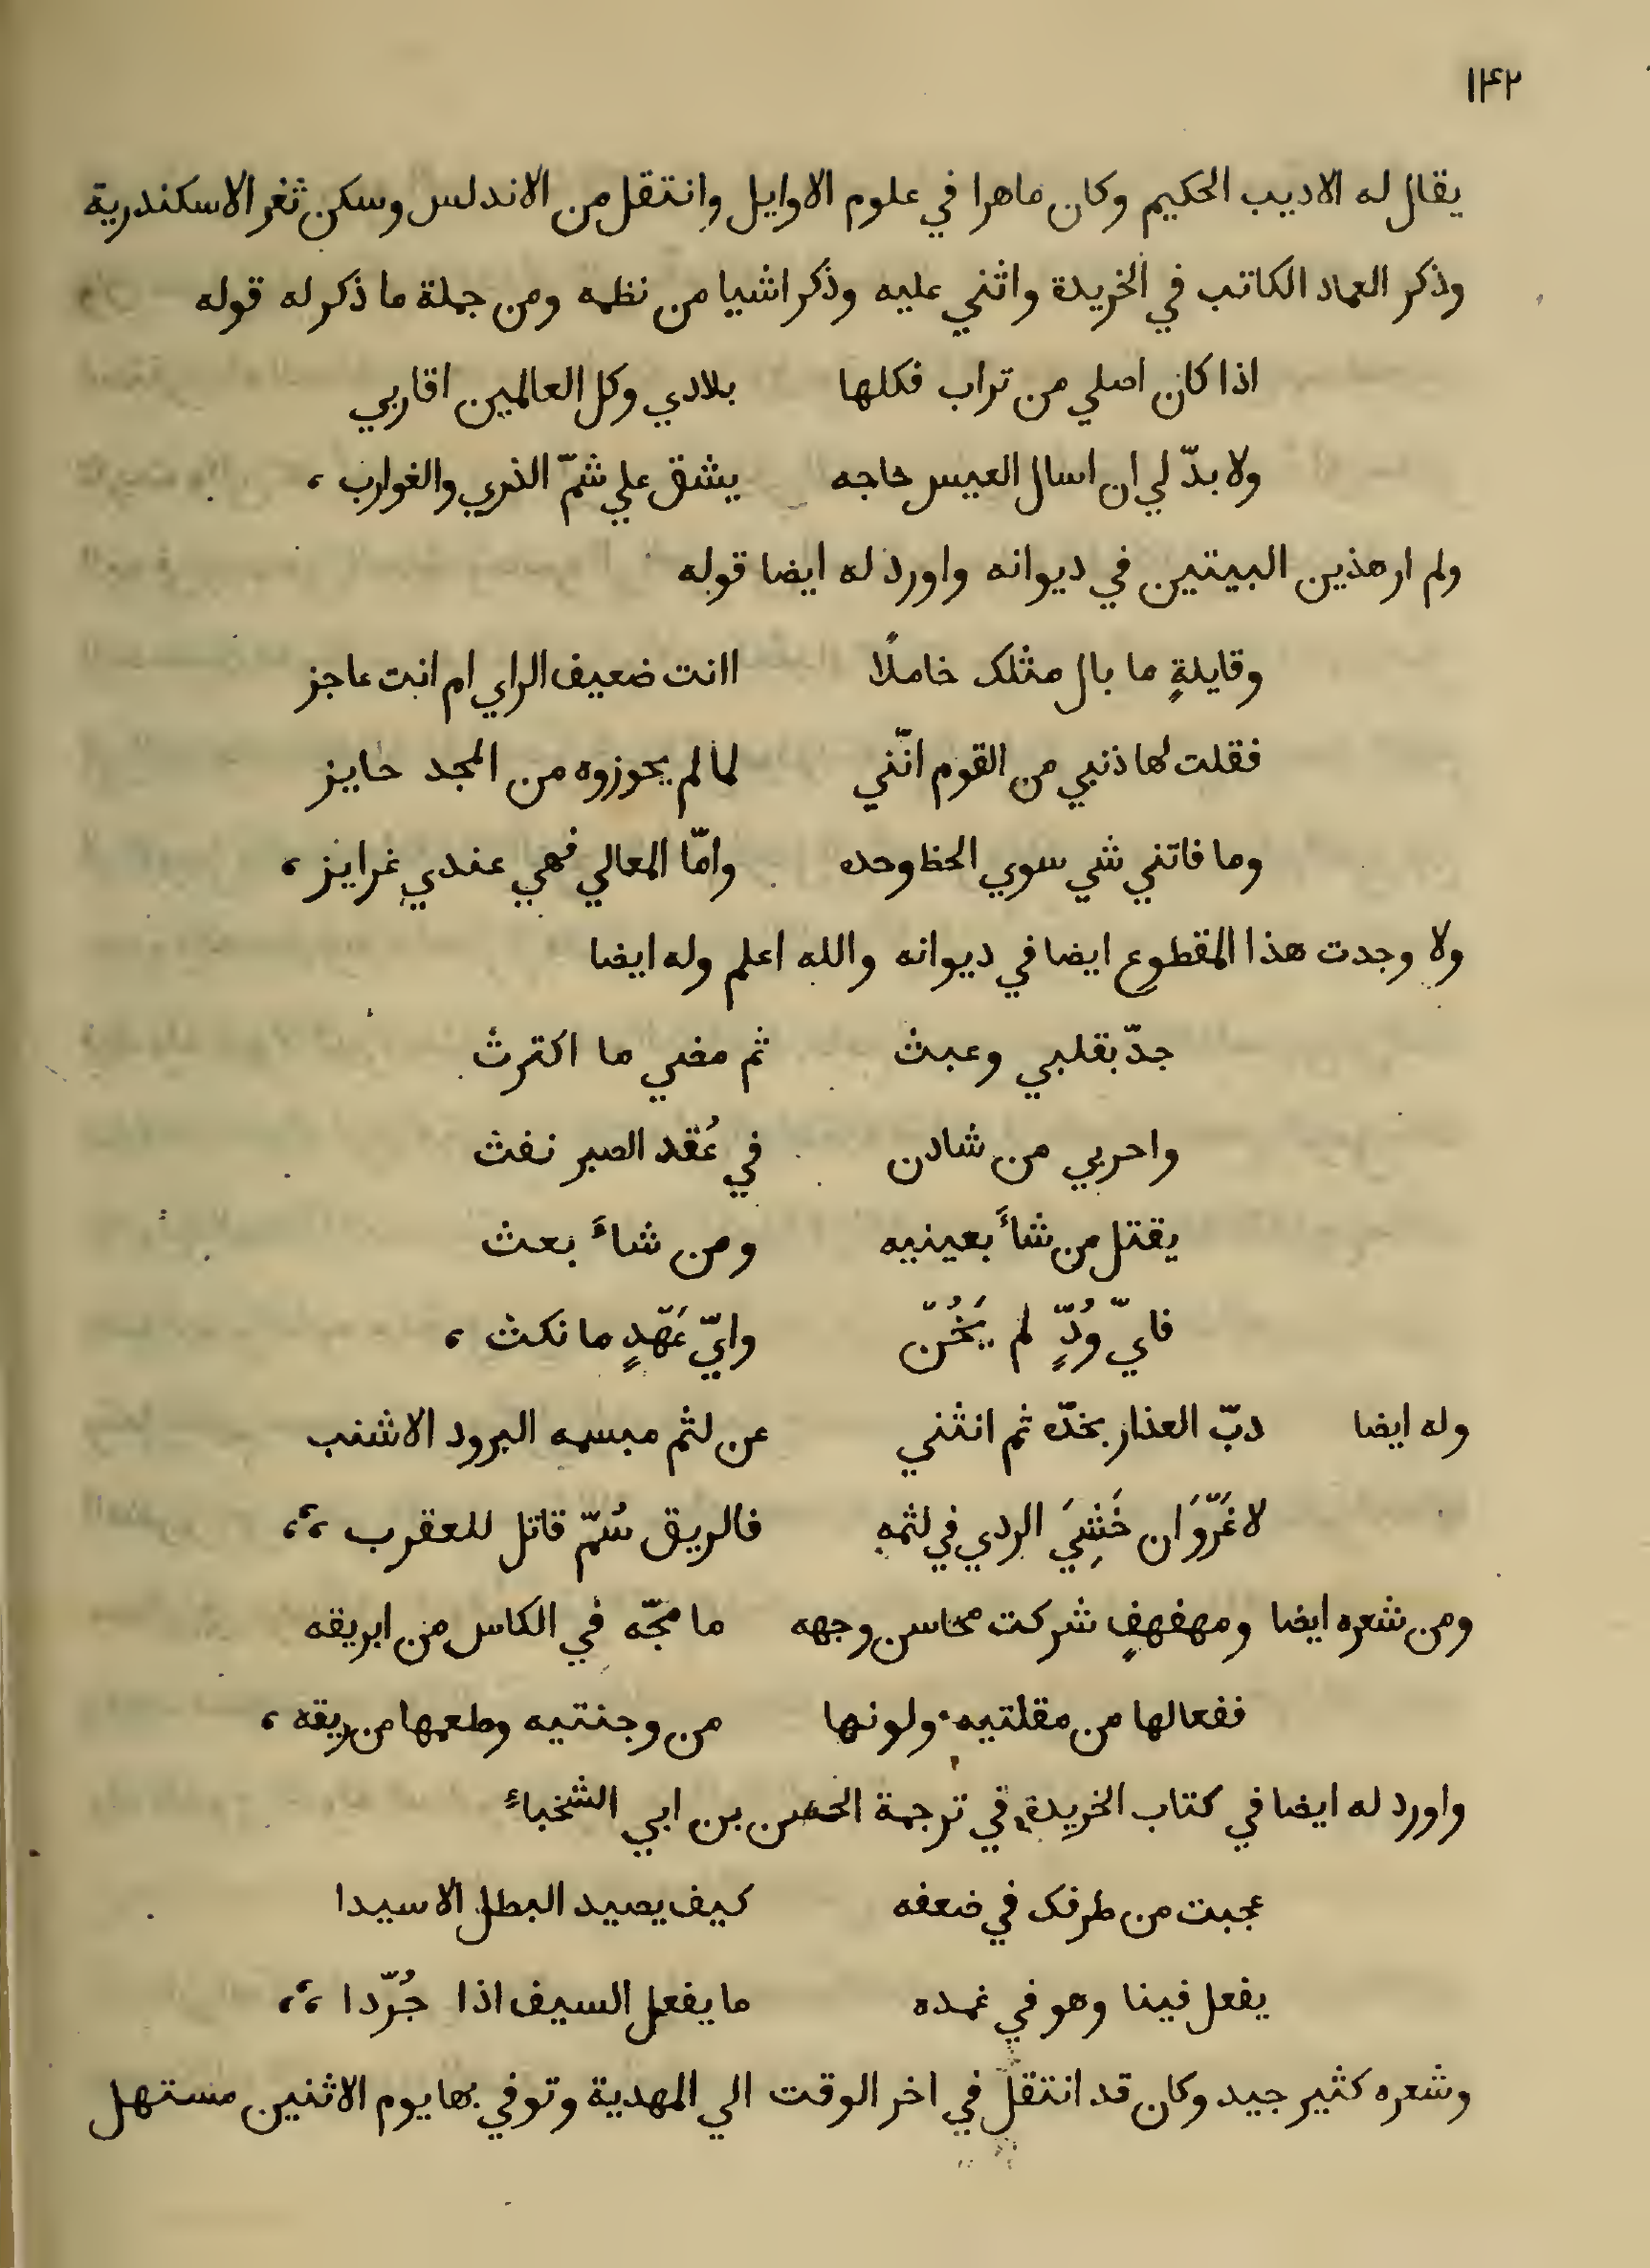 ١٤٢
يقال له الاديب الحكيم وكان ماهرا في علوم الاوايل وانتقل من الاندلس وسكن ثغر الاسكندرية
وذكر العماد الكاتب في الخريدة واثني عليه وذكر اشيا من نظمه ومن جملة ما ذكر له قوله
اذا كان اصلي من تراب فكلها بلادي وكل العالمين اقاربي
ولا بدّ لي ان اسال العيس حاجه يشق علي شمّ الذري والغوارب ،
ولم ار هذين البيتين في ديوانه واورد له ايضا قوله
وقايلةٍ ما بال مثلك خاملًا اانت ضعيف الراي ام انت عاجز
فقلت لها ذنبي من القوم انّني لما لم يحوزوه من المجد حايز
وما فاتني شي سوي الحظ وحده وامّا المعالي فهي عندي غرايز ،
ولا وجدت هذا المقطوع ايضا في ديوانه والله اعلم وله ايضا
جدّ بقلبي وعبث ثم مضي ما اكترث
واحربي من شادن في عُقد الصبر نفث
يقتل من شأَ بعينيه ومن شأَ بعث
فايّ وُدٍّ لم يَخُنّ وايّ عَهّدٍ ما نكث ،
وله ايضا دبّ العذار بخدّه ثم انثني عن لثم مبسمه البرود الاشنب
لا غَرّوَ ان خَشِيَ الردي في لثمه فالريق سُمّ قاتل للعقرب ،،،
ومن شعره ايضا ومهفهفٍ شركت محاسن وجهه ما مجّه في الكاس من ابريقه
ففعالها من مقلتيه ولونها من وجنتيه وطعمها من ريقه ،
واورد له ايضا في كتاب الخريدة في ترجمة الحسن بن ابي الشخباءِ
عجبت من طرفك في ضعفه كيف يصيد البطل الاسيدا
يفعل فينا وهو في غمده ما يفعل السيف اذا جُرّدا ،،،
وشعره كثير جيد وكان قد انتقل في اخر الوقت الي المهدية وتوفي بها يوم الاثنين مستهل